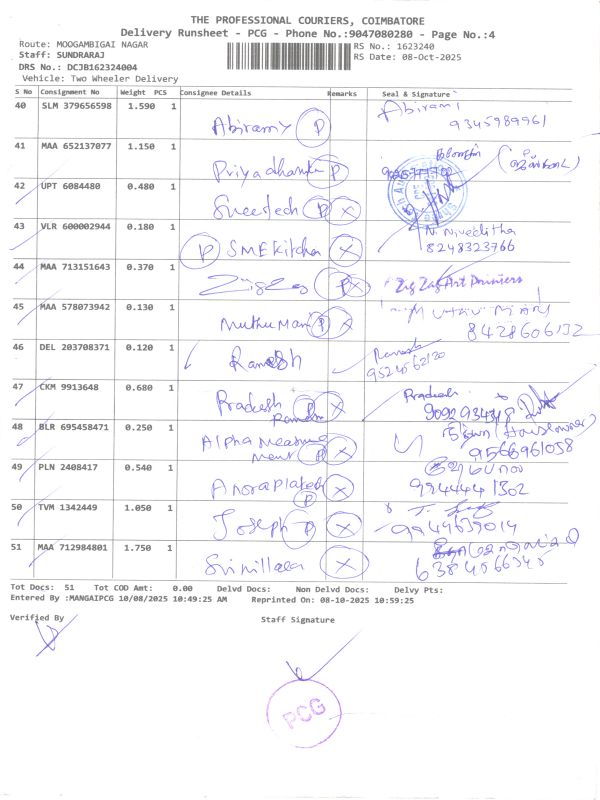 THE PROFESSIONAL COURIERS, COIMBATORE
Delivery Runsheet - PCG - Phone No.:9047080280 - Page No.:4
Route: MOOGAMBIGAI NAGAR RS No.: 1623240
Staff: SUNDRARAJ RS Date: 08-Oct-2025
DRS No.: DCJB162324004
Vehicle: Two Wheeler Delivery
S No Consignment No Weight PCS Consignee Details Remarks Seal & Signature
40 SLM 379656598 1.590 1 Abiramy P Abirami
9345989961
41 MAA 652137077 1.150 1 P
42 UPT 6084480 0.480 1 P X
43 VLR 600002944 0.180 1 P SMEKitchen X N. Niveditha
8248323766
44 MAA 713151643 0.370 1 ZigZag P X Zig Zag Art Printers
45 MAA 578073942 0.130 1 Muthu Mani P X
8428606132
46 DEL 203708371 0.120 1 Ramesh Ramesh
9524562120
47 CKM 9913648 0.680 1 Pradesh X
48 BLR 695458471 0.250 1 Alpha Measure
ment P X (House owner)
9566961058
49 PLN 2408417 0.540 1 P X
9944441302
50 TVM 1342449 1.050 1 Joseph P X
9944639014
51 MAA 712984801 1.750 1 X
Tot Docs: 51 Tot COD Amt: 0.00 Delvd Docs: Non Delvd Docs: Delvy Pts:
Entered By :MANGAIPCG 10/08/2025 10:49:25 AM Reprinted On: 08-10-2025 10:59:25
Verified By Staff Signature
PCG